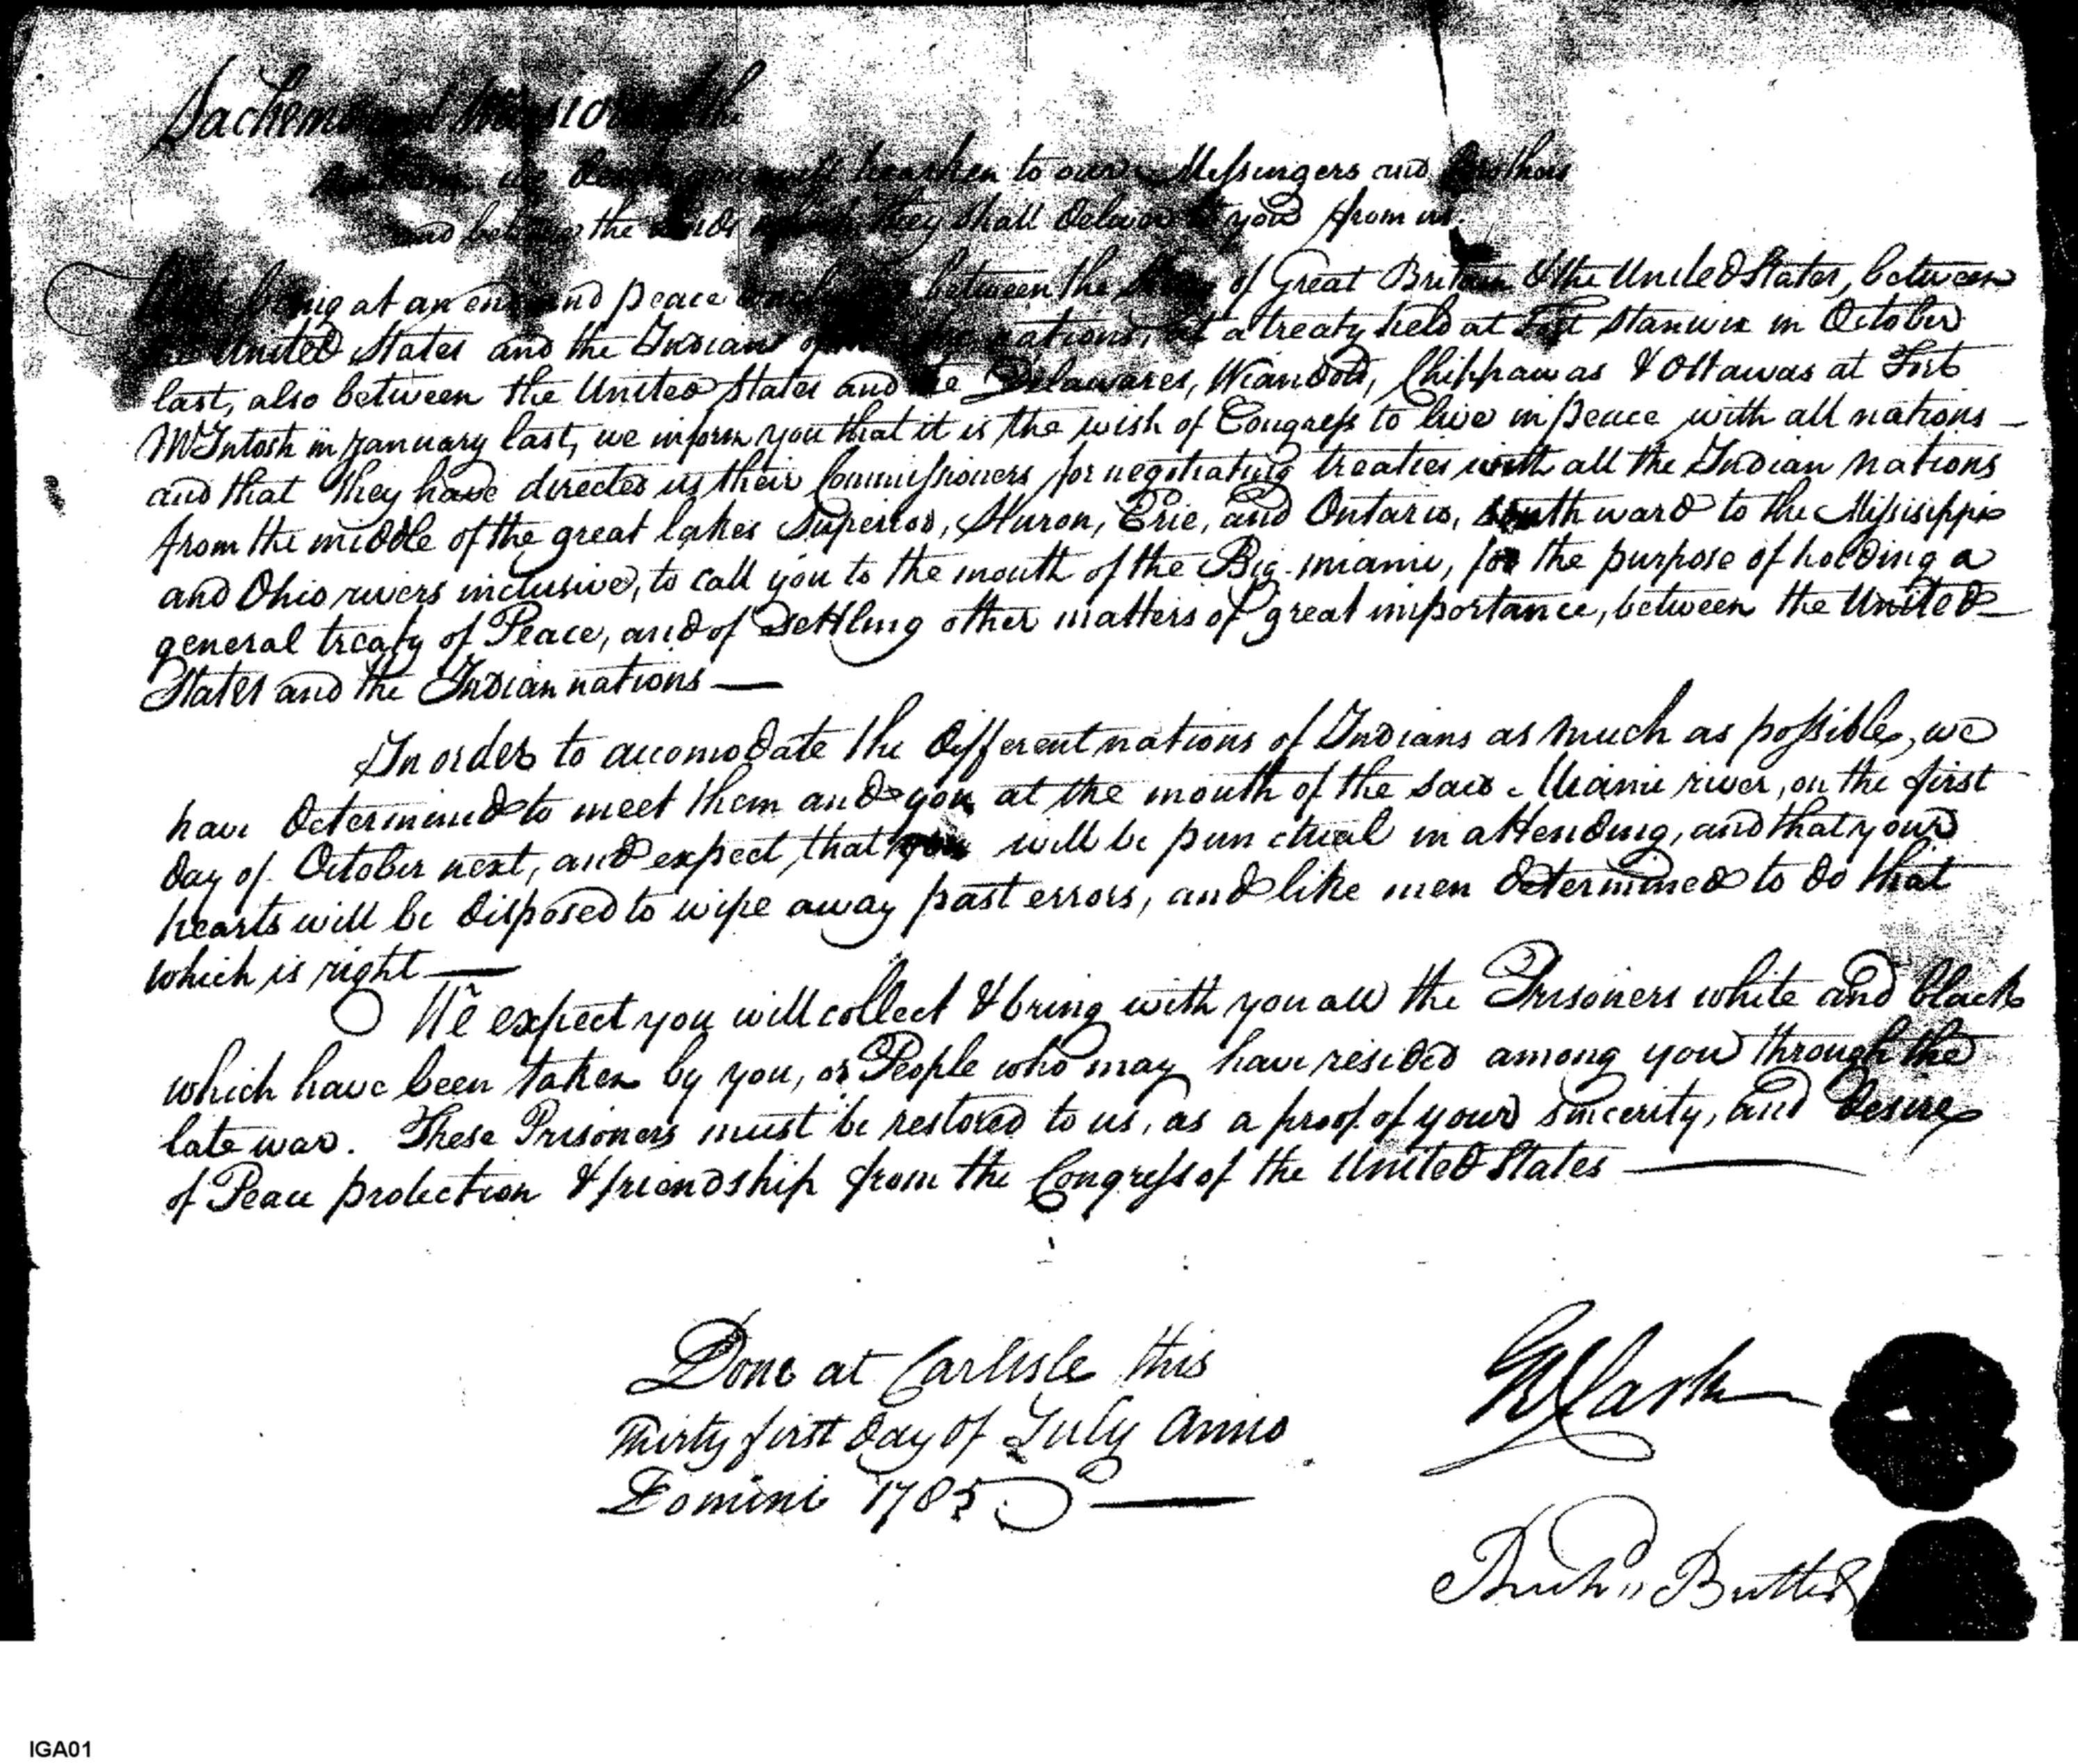 Sachems and Warriors the
we desire you will hearken to our Messengers and Brothers
and believe the words which they shall deliver to you from us.
being at an end and peace between the King of Great Britain & the United States, between
the United States and the Indians of the nations, at a treaty held at Fort Stanwix in October
last, also between the United States and the Delawares, Wiandots, Chippawas & Ottawas at Fort
McIntosh in January last, we inform you that it is the wish of Congress to live in peace with all nations —
and that they have directed us their Commissioners for negotiating treaties with all the Indian nations
from the middle of the great lakes Superior, Huron, Erie, and Ontario, southward to the Missisippi
and Ohio rivers inclusive, to call you to the mouth of the Big-miami, for the purpose of holding a
general treaty of Peace, and of settling other matters of great importance, between the United
States and the Indian nations —
In order to accomodate the different nations of Indians as much as possible, we
have determined to meet them and you at the mouth of the said Miami river, on the first
day of October next, and expect that you will be punctual in attending, and that your
hearts will be disposed to wipe away past errors, and like men determined to do that
which is right —
We expect you will collect & bring with you all the Prisoners white and black
which have been taken by you, or People who may have resided among you through the
late war. These Prisoners must be restored to us, as a proof of your sincerity, and desire
of Peace protection & friendship from the Congress of the United States —
Done at Carlisle this
Thirty first day of July Anno
Domini 1785. —
G R Clark
Richd. Butler
IGA01